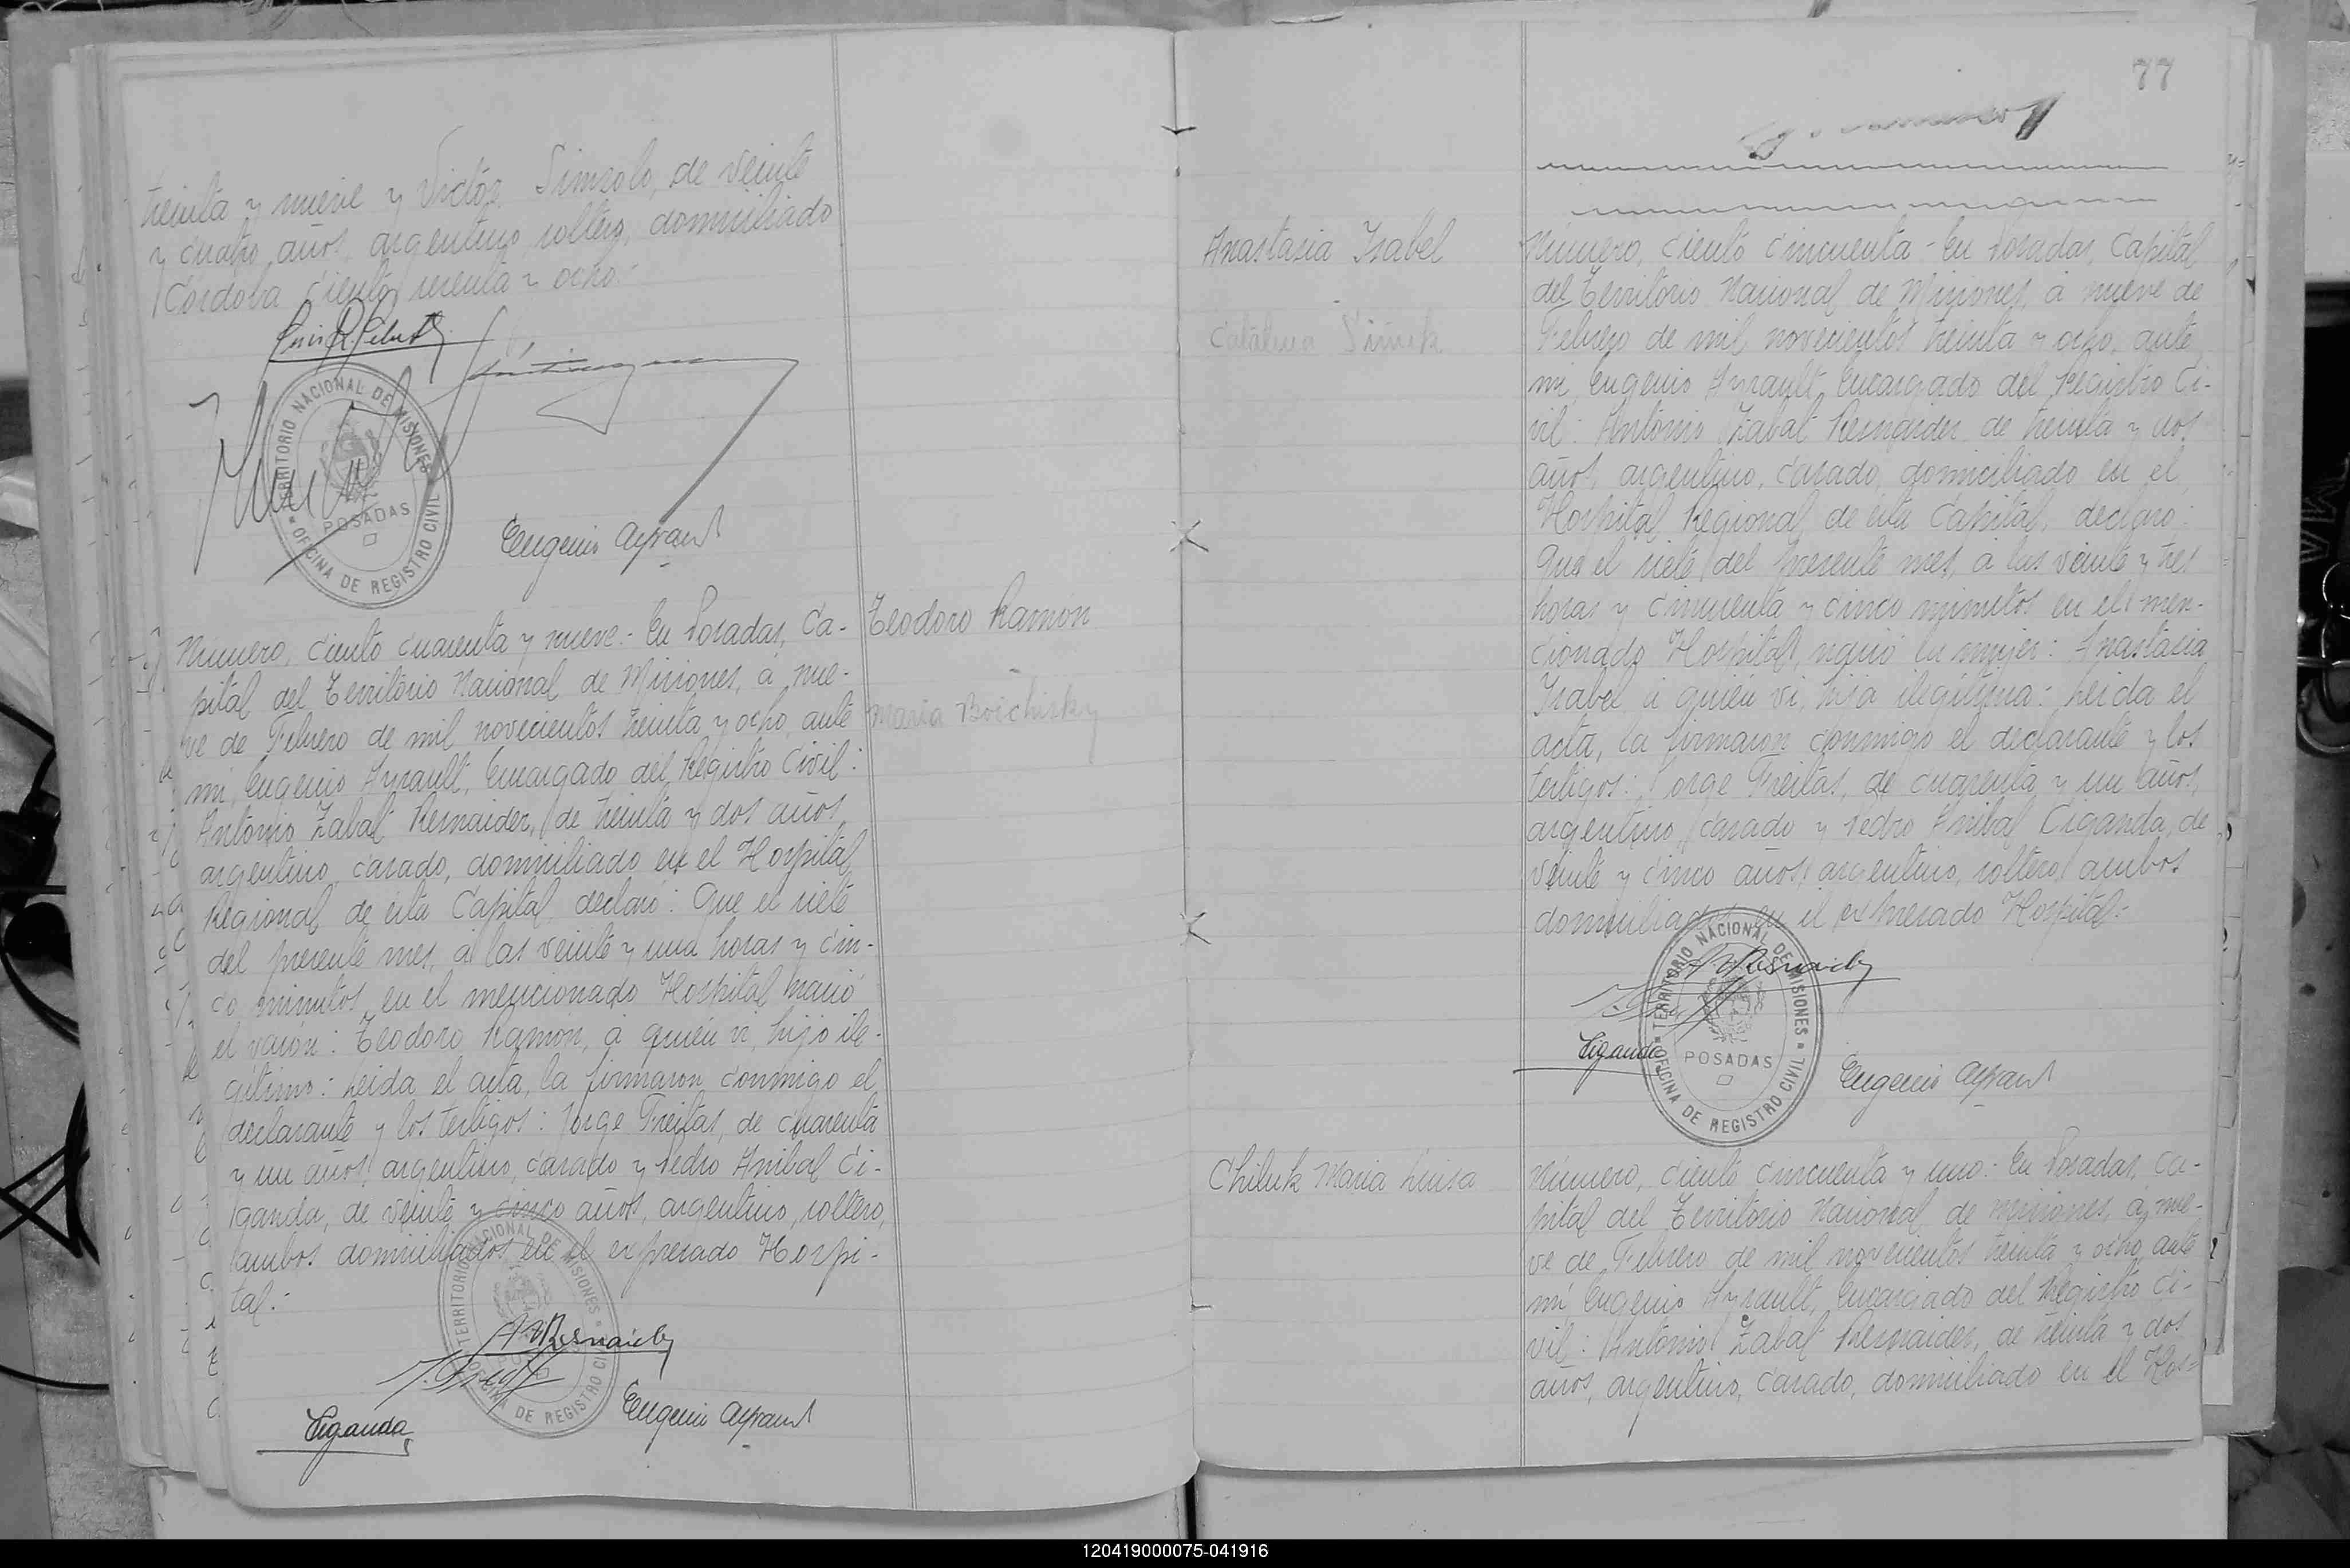 treinta y nueve y Victor Simsolo, de veinte
y cuatro años, argentino, soltero, domiciliado
Cordova ciento sesenta y ocho.-
TERRITORIO NACIONAL DE MISIONES
POSADAS
OFICINA DE REGISTRO CIVIL
Eugenio Ayrault
Numero, ciento cuarenta y nueve.- En Posadas, Ca-
pital del Territorio Nacional de Misiones, a nue-
ve de Febrero de mil novecientos treinta y ocho, ante
mi, Eugenio Ayrault, Encargado del Registro Civil:
Antonio Zabat Resnaider, de treinta y dos años
argentino, casado, domiciliado en el Hospital
Regional de esta Capital, declaró: Que el siete
del presente mes, a las veinte y una horas y cin-
co minutos, en el mencionado Hospital, nació
el varón: Teodoro Ramón, a quién vi, hijo ile-
gitimo: Leida el acta, la firmaron conmigo el
declarante y los testigos: Jorge Freitas, de cuarenta
y un años, argentino, casado y Pedro Anibal Ci-
ganda, de veinte y cinco años, argentino, soltero,
ambos domiciliados en el expresado Hospi-
tal.-
Teodoro Ramón
Maria Boichisky
TERRITORIO NACIONAL DE MISIONES
OFICINA DE REGISTRO CIVIL
A Z Resnaider
J. Freitas
Ciganda
Eugenio Ayrault
77
Anastasia Isabel
Catalina Simik
Número, ciento cincuenta - En Posadas, Capital
del Territorio Nacional de Misiones, a nueve de
Febrero de mil novecientos treinta y ocho, ante
mi, Eugenio Ayrault, Encargado del Registro Ci-
vil: Antonio Zabat Resnaider, de treinta y dos
años, argentino, casado, domiciliado en el
Hospital Regional de esta Capital, declaró:
Que el siete del presente mes, a las veinte y tres
horas y cincuenta y cinco minutos en el men-
cionado Hospital, nació la mujer: Anastasia
Isabel, a quién vi, hija ilegitima: Leida el
acta, la firmaron conmigo el declarante y los
testigos: Jorge Freitas, de cuarenta y un años,
argentino, casado y Pedro Anibal Ciganda, de
veinte y cinco años, argentino, soltero, ambos
domiciliados en el expresado Hospital.-
TERRITORIO NACIONAL DE MISIONES
POSADAS
OFICINA DE REGISTRO CIVIL
A Z Resnaider
Ciganda
Eugenio Ayrault
Chiluk Maria Luisa
Número, ciento cincuenta y uno.- En Posadas, Ca-
pital del Territorio Nacional de Misiones, a nue-
ve de Febrero de mil novecientos treinta y ocho, ante
mi, Eugenio Ayrault, Encargado del Registro Ci-
vil: Antonio Zabat Resnaider, de treinta y dos
años, argentino, casado, domiciliado en el Hos=
120419000075-041916